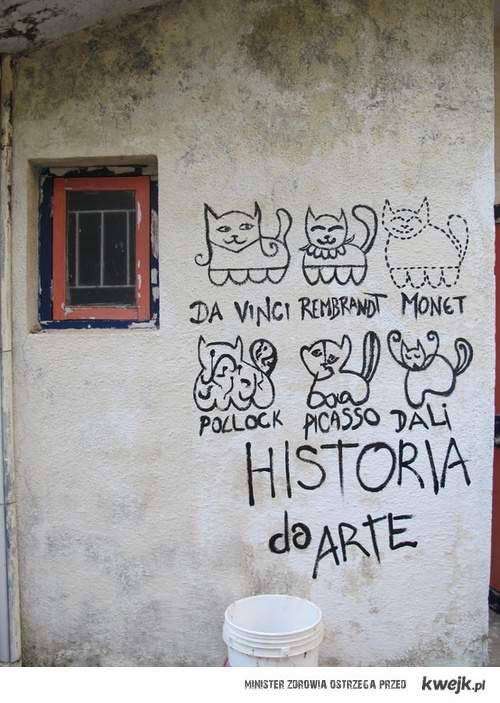 DA VINCI REMBRANDT MONET
POLLOCK PICASSO DALI
HISTORIA
da ARTE
MINISTER ZDROWIA OSTRZEGA PRZED kwejk.pl